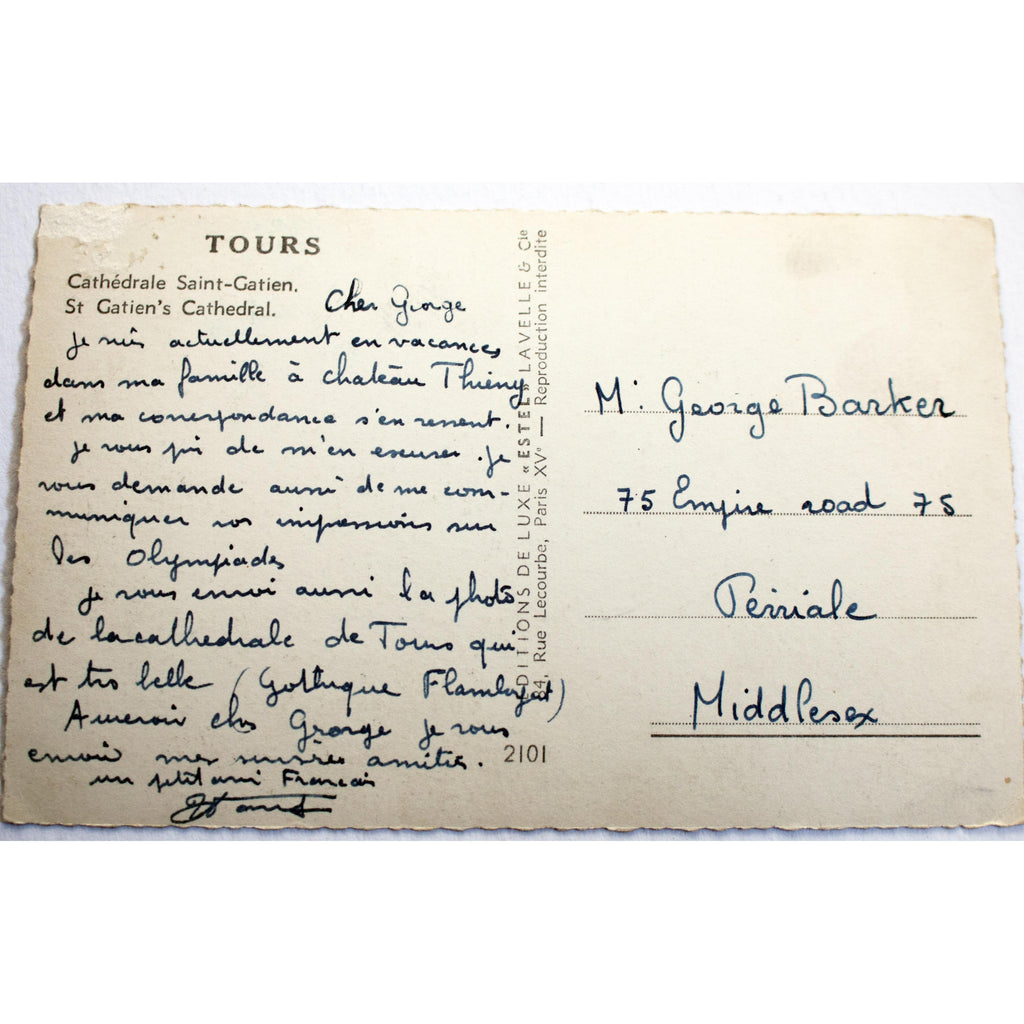 TOURS
Cathédrale Saint-Gatien.
St Gatien's Cathedral.
Cher George
je suis actuellement en vacances
dans ma famille à chateau Thierry
et ma correspondance s'en ressent.
je vous pri de m'en escuser. je
vous demande aussi de me com-
muniquer vos impressions sur
les Olympiades
je vous envoi aussi la photo
de la cathedrale de Tours qui
est tres belle (Gothique Flamboyant)
Aurevoir cher George je vous
envoi mes sincères amitiés.
un petit ami Francais
EDITIONS DE LUXE «ESTEL» LAVELLE & Cie
84, Rue Lecourbe, Paris XVe — Reproduction interdite
2101
Mr George Barker
75 Empire road 75
Perriale
Middlesex